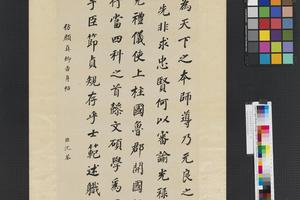 為天下之本師導乃元良之
先非求忠賢何以審諭光祿
充禮儀使上柱國魯郡開國
行當四科之首懿文碩學為
于臣節貞規存乎士範述職
仿顏真卿告身帖
臣沈荃